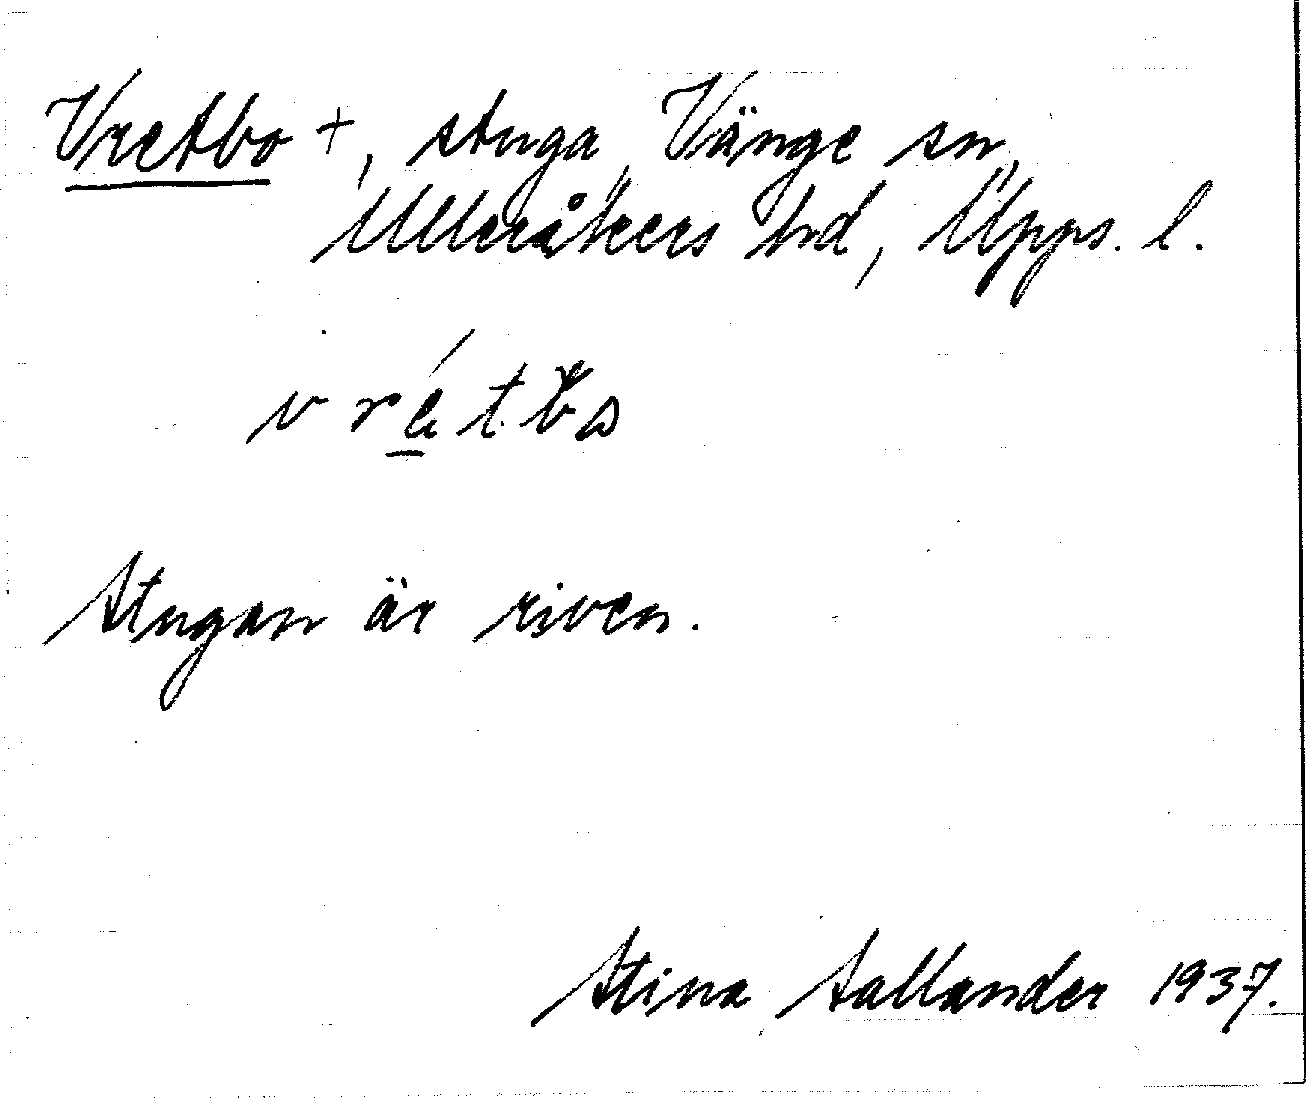 Vretbo +, stuga, Vänge sn,
Ulleråkers hd, Upps. l.
vrétbo
Stugan är riven.
Stina Sallander 1937.